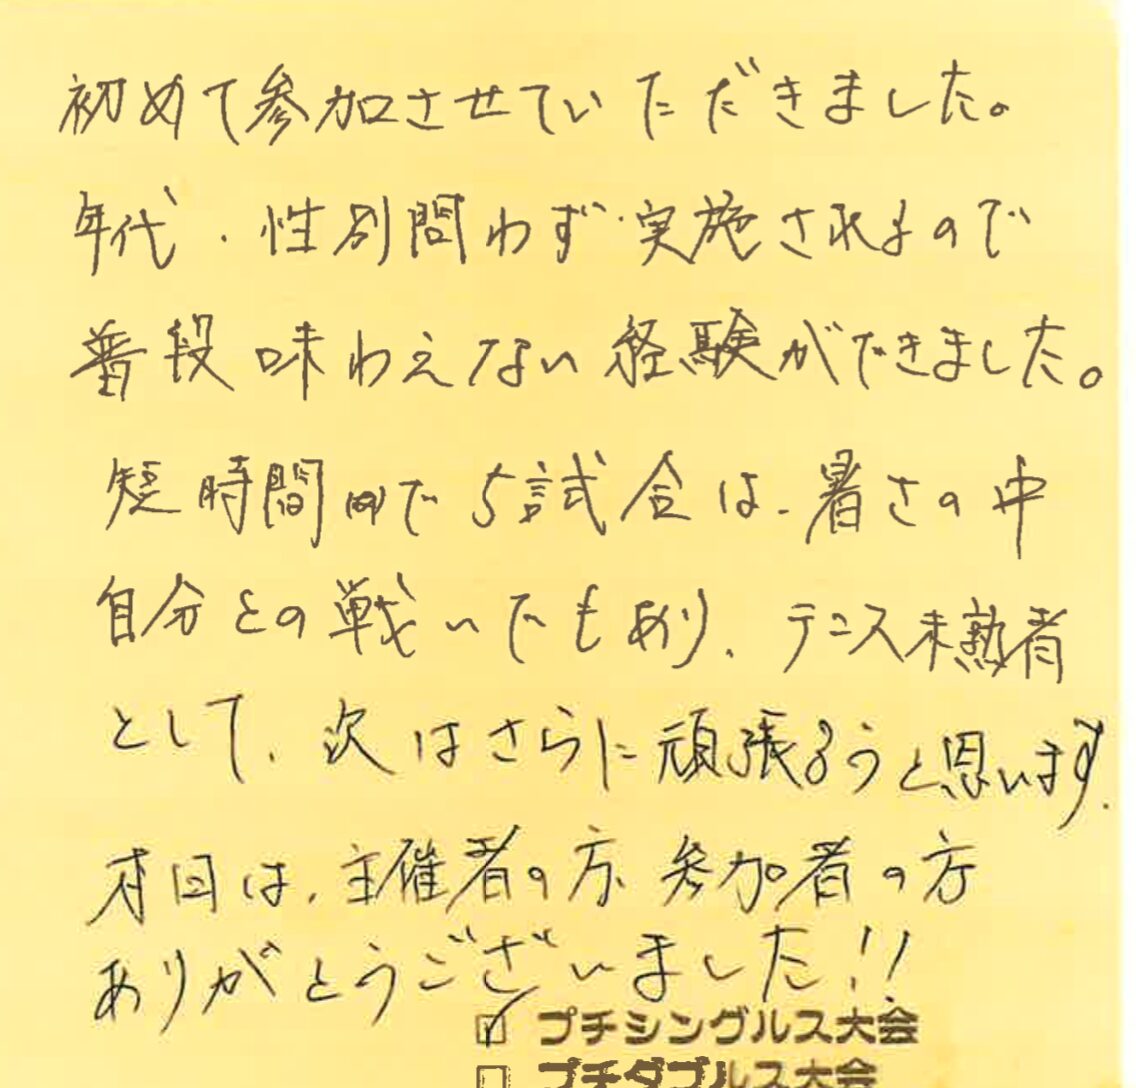 初めて参加させていただきました。
年代、性別問わず実施されるので
普段味わえない経験ができました。
短時間内で5試合は、暑さの中
自分との戦いでもあり、テニス未熟者
として、次はさらに頑張ろうと思います。
本日は、主催者の方、参加者の方
ありがとうございました!!
☑ プチシングルス大会
□ プチダブルス大会